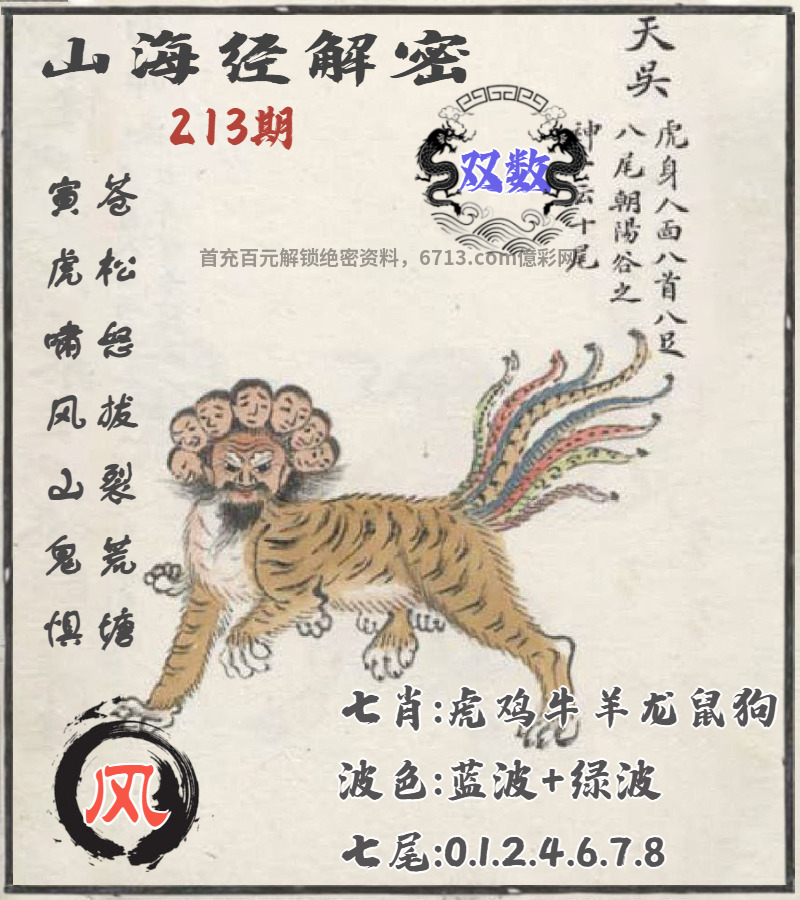 山海经解密
213期
天吳
虎身八面八首八足
八尾朝陽谷之
神
云十尾
双数
首充百元解锁绝密资料，6713.com億彩网
苍松怒拔裂荒塘
寅虎啸风山鬼惧
七肖:虎鸡牛羊龙鼠狗
波色:蓝波+绿波
七尾:0.1.2.4.6.7.8
风